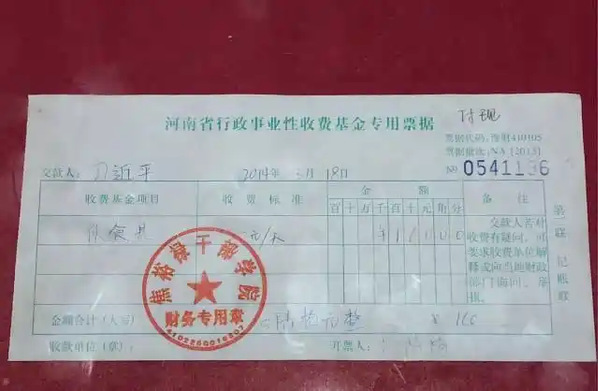 付现
河南省行政事业性收费基金专用票据
票据代码：豫财410105
票据批次：NA [2013]
№ 0541136
交款人：习近平 2014年 3月 18日
收费基金项目 收费标准 金额 备注
百十万千百十元角分
伙食费 元/天 ¥16000
交款人若对收费有疑问，可要求收费单位解释或向当地财政部门询问、举报。
第 联 记账联
焦裕禄干部学院
财务专用章
金额合计（大写） 陆拾元整 ¥ 160
收款单位（章）： 开票人：